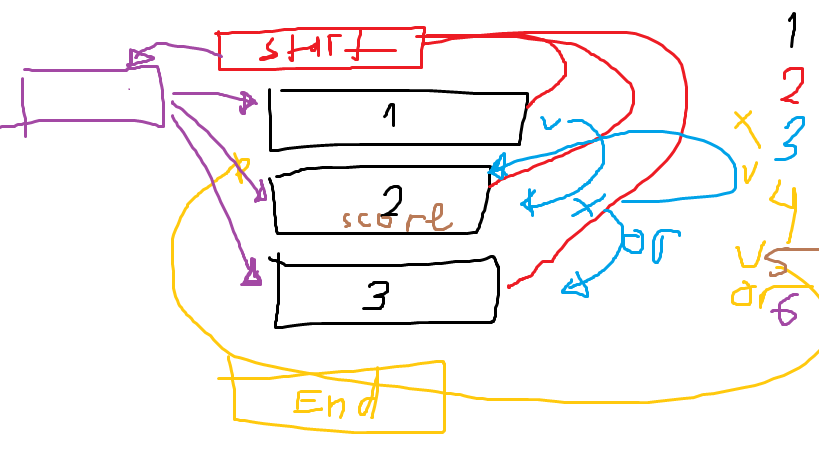 start
1
2
score
3
End
v
x
or
1
2
x
3
v
4
v
5
or
6